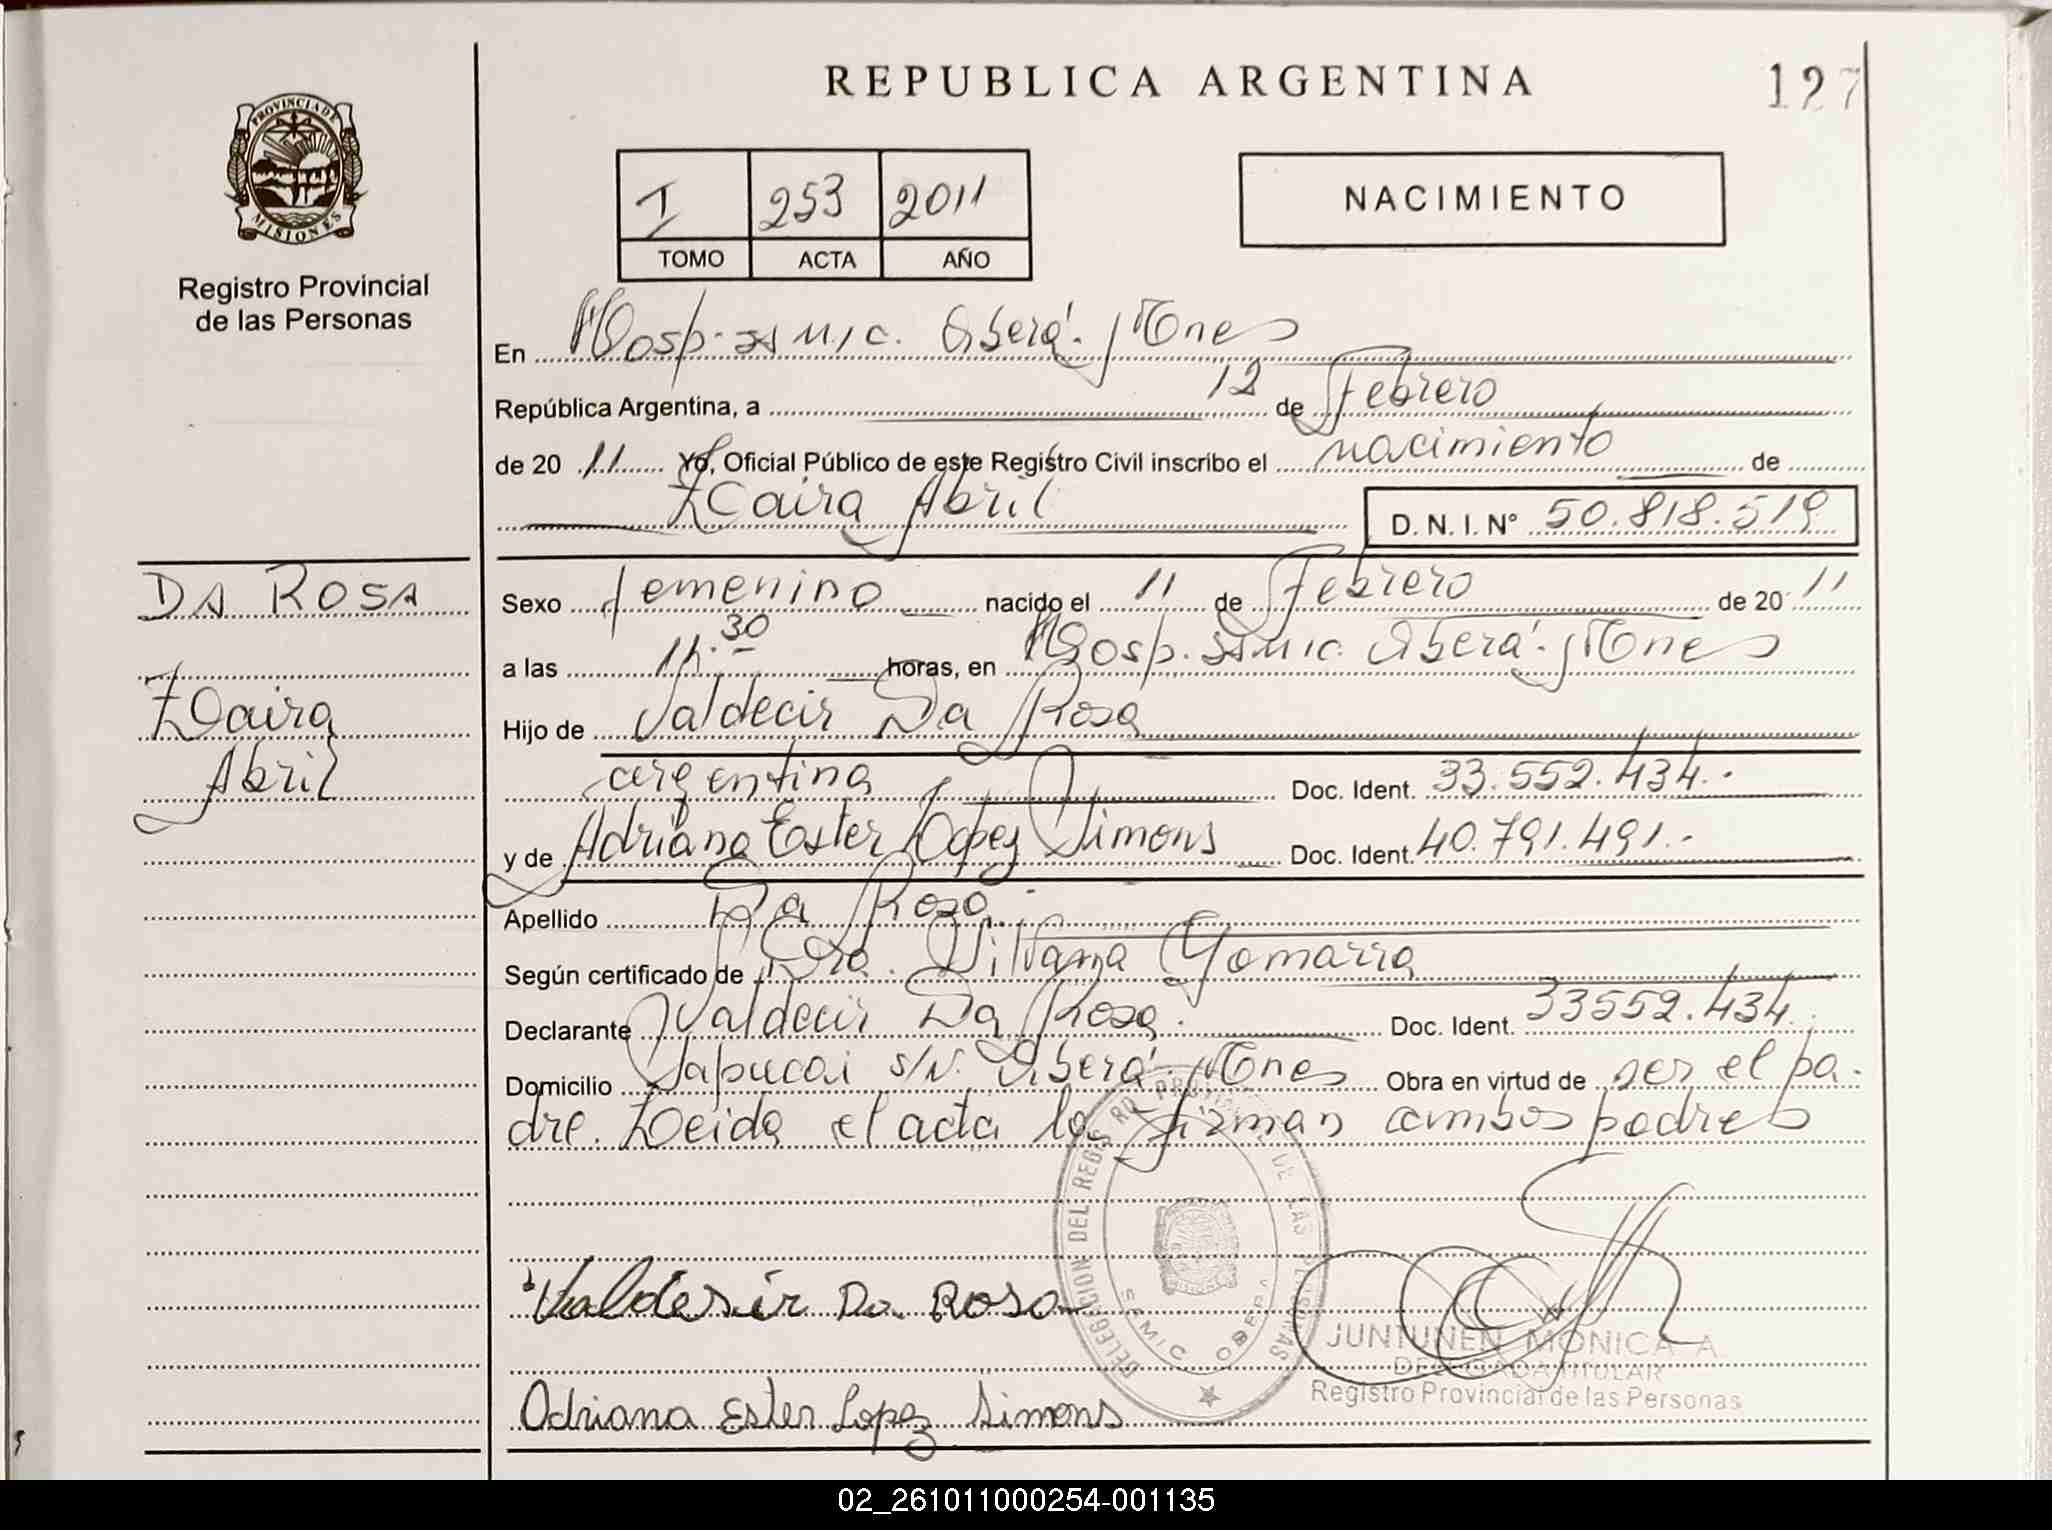 REPUBLICA ARGENTINA
127
PROVINCIA DE MISIONES
Registro Provincial
de las Personas
I 253 2011
TOMO ACTA AÑO
NACIMIENTO
En Hosp. SAMIC. Oberá. Mnes
República Argentina, a 12 de Febrero
de 20 11 Yo, Oficial Público de este Registro Civil inscribo el nacimiento de
Zaira Abril D. N. I. N° 50.818.519
DA ROSA
Zaira
Abril
Sexo femenino nacido el 11 de Febrero de 20 11
a las 11.30 horas, en Hosp. SAMIC. Oberá. Mnes
Hijo de Valdecir Da Rosa
argentina Doc. Ident. 33.552.434.-
y de Adriana Ester Lopez Simons Doc. Ident. 40.791.491.-
Apellido Da Rosa
Según certificado de Dra. Silvana Gomarra
Declarante Valdecir Da Rosa. Doc. Ident. 33552.434.
Domicilio Sapucai s/N. Oberá. Mnes Obra en virtud de ser el pa-
dre. Leida el acta la firman ambos padres
Valdesir Da Rosa
Adriana Ester Lopez Simons
DELEGACION DEL REGISTRO PROVINCIAL DE LAS PERSONAS
SAMIC OBERA
JUNTUNEN MONICA A.
DELEGADA TITULAR
Registro Provincial de las Personas
02_261011000254-001135